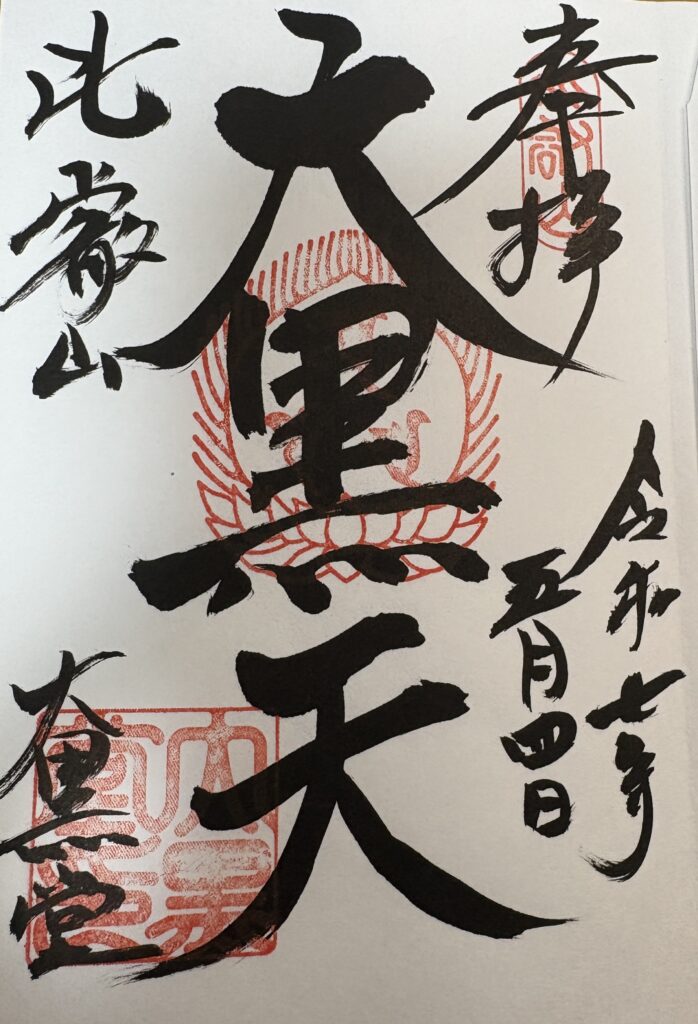 奉拝
令和七年
五月四日
大黒天
比叡山
大黒堂